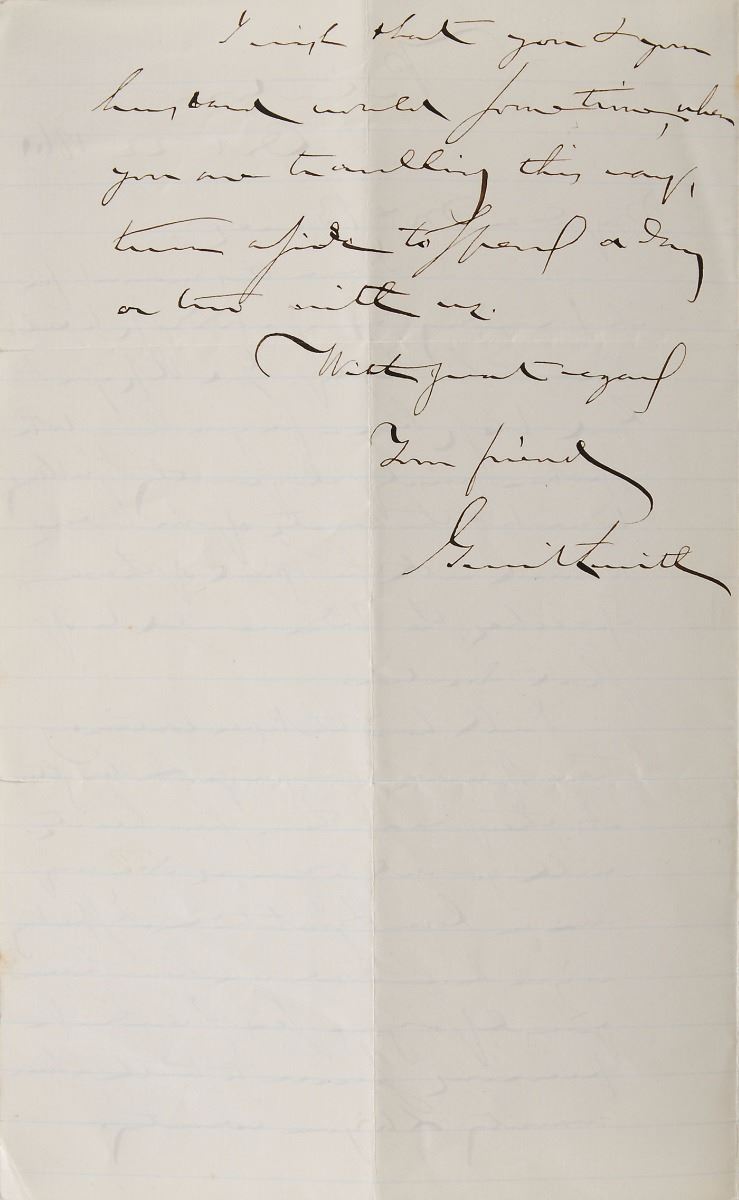 I wish that you & your
husband would sometime, when
you are travelling this way,
turn aside to spend a day
or two with us.
With great regard
Your friend
Gerrit Smith